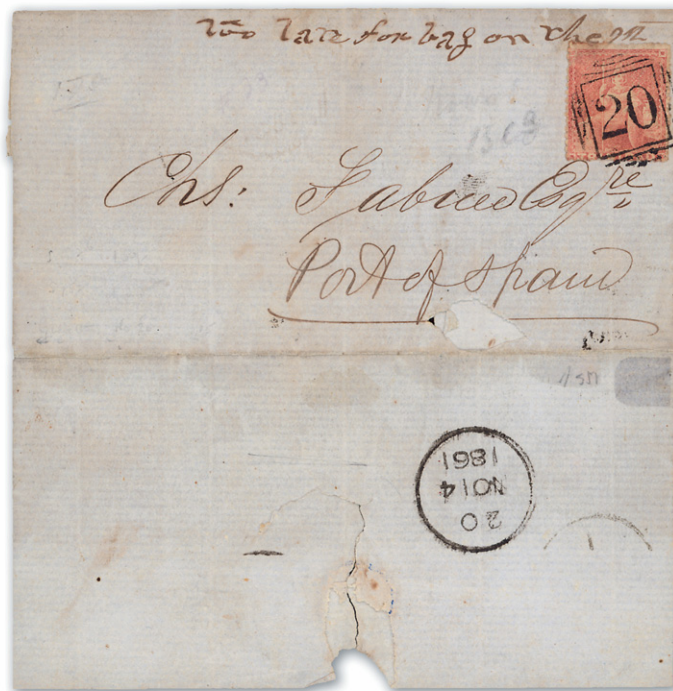 too late for bag on the
20
Chs: Fabien Esqre
Port of Spain
20
NO 14
1861